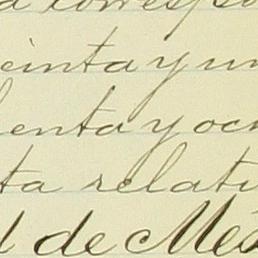 a corresp
einta y un
enta y och
ta relati
l de Méx